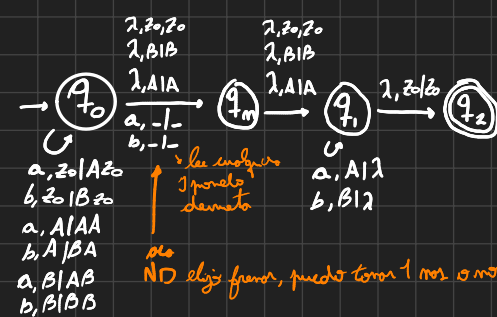 λ, Z₀, Z₀
λ, B|B
λ, A|A
a, -|-
b, -|-
λ, Z₀, Z₀
λ, B|B
λ, A|A
λ, Z₀/Z₀
q₀
qₘ
q₁
q₂
a, Z₀|AZ₀
b, Z₀|BZ₀
a, A|AA
b, A|BA
a, B|AB
b, B|BB
a, A|λ
b, B|λ
lee cualquier
y ponelo
ND elijo frenar, puedo tomar 1 mas o no